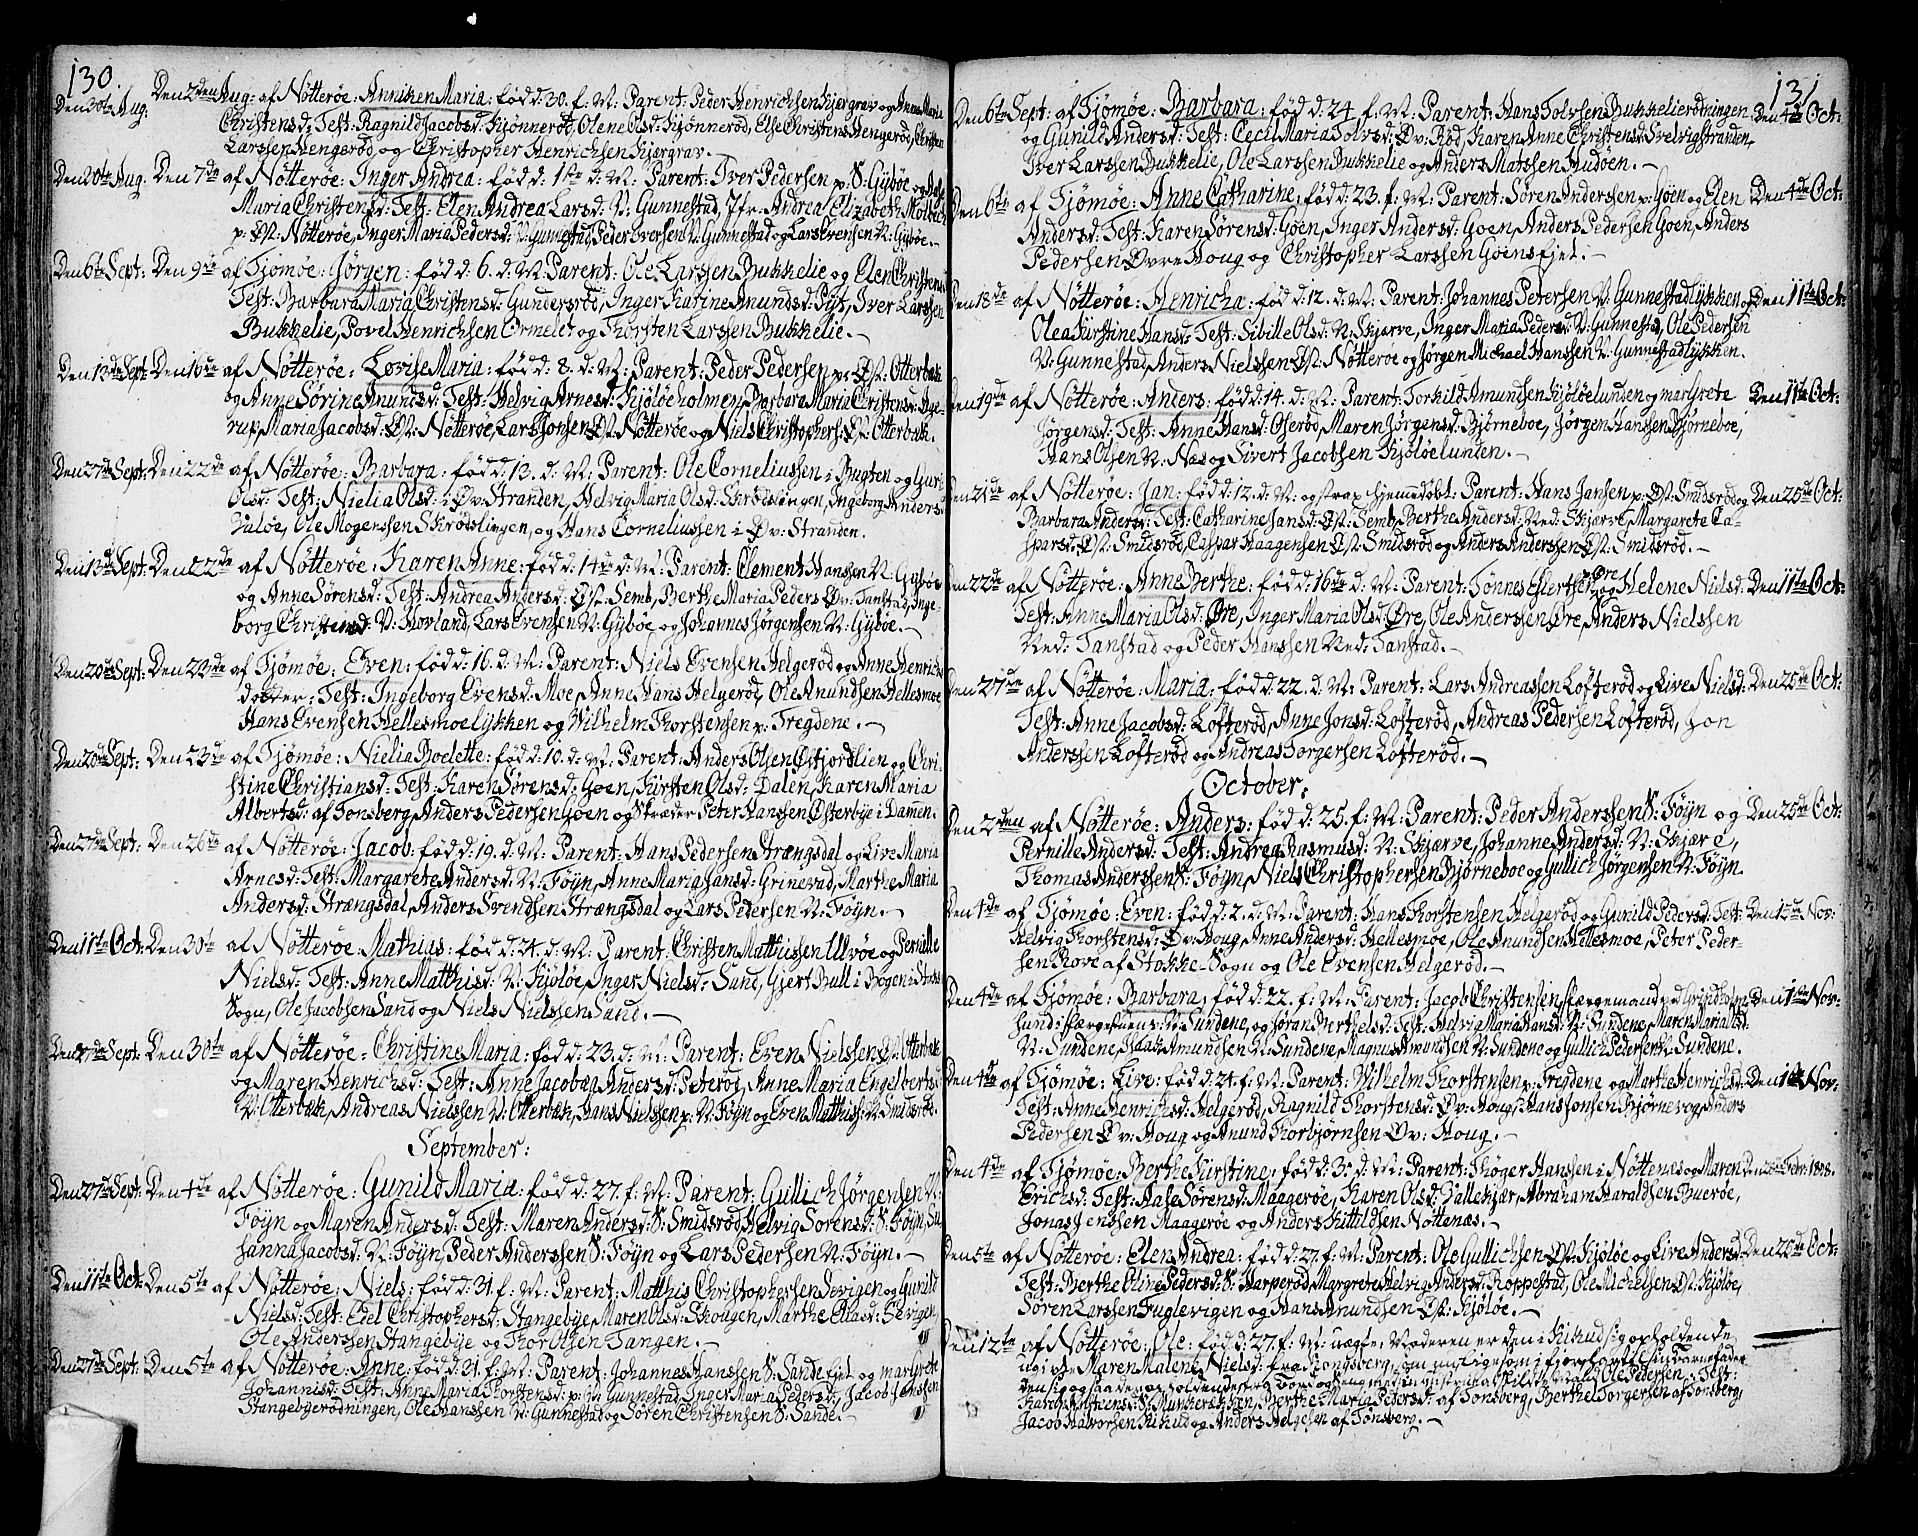 130.
Den 30te Aug: Den 2den Aug: af Nötteröe: Anniken Maria: född: 30. f: M: Parent: Peder Henrichsen Kjergrav og Anne Maria
Christensd: Test: Ragnild Jacobsd: Kjönneröd, Olene Olsd: Kjönneröd, Else Christens Hengeröd, Christen
Larssen Hengeröd og Christopher Henrichsen Kjergrav. –
Den 30te Aug. Den 7de af Nötteröe: Inger Andrea: född: 1ste d: M: Parent: Iver Pedersen p: S: Gyböe og
Maria Christensd: Test: Elen Andrea Larsd: V: Gunnestad, Jfr: Andrea Elizabeth
p: Öst: Nötteröe, Inger Maria Pedersd: V: Gunnestad, Peder Iversen V: Gunnestad og Lars Evensen N: Gyböe. –
Den 6te Sept: Den 9de af Tjömöe: Jörgen: född: 6. d: M: Parent: Ole Larssen Bukkelie og Elen Christensd:
Test: Barbara Maria Christensd: Gunderöd, Inger Karine Anundsd: Pytz, Iver Larssen
Bukkelie, Povel Henrichsen Ormelet og Thorsten Larssen Bukkelie. –
Den 13de Sept: Den 16de af Nötteröe: Lovise Maria: född: 8. d: M: Parent: Peder Pedersen p: Öst: Otterbæk
og Anne Sörine Anundsd: Test: Helvig Arnesd: Kjölöeholmen, Barbara Maria Christensd: Age-
rup, Maria Jacobsd: Öst: Nötteröe, Lars Jonsen Öst: Nötteröe og Niels Christophers: Öst: Otterbæk.
Den 27de Sept: Den 22de af Nötteröe: Barbara: född: 13. d: M: Parent: Ole Corneliussen i Bugten og Guri
Olsd: Test: Nielia Olsd: i Öv: Stranden, Helvig Maria Olsd: Skrödslingen, Ingeborg Andersd:
Valöe, Ole Mogenssen Skrödslingen, og Hans Corneliussen i Öv: Stranden.
Den 13de Sept: Den 22de af Nötteröe: Karen Anne: född: 14de d: M: Parent: Clement Hansen N: Gyböe
og Anne Sörensd: Test: Andrea Andersd: Öst: Semb, Berthe Maria Peders Öv: Tanstad, Inge-
borg Christensd: V: Hovland, Lars Evensen N: Gyböe og Johannes Jörgensen N: Gyböe. –
Den 20de Sept: Den 23de af Tjömöe: Even: född: 16. d: M: Parent: Niels Evensen Helgeröd og Anne Henrichs
dotter: Test: Ingeborg Evensd: Moe, Anne Hans Helgeröd, Ole Anundsen Hellesmoe
Hans Evensen Hellesmoelykken og Wilhelm Thorstensen p: Tregdene. –
Den 20de Sept: Den 23de af Tjömöe: Nielia Boelette: född: 10. d: M: Parent: Anders Olsen Östjordlien og Chri-
stine Christiansd: Test: Karen Sörensd: Goen, Kirsten Olsd: Dalen, Karen Maria
Albertsd: af Tonsberg, Anders Pedersen Goen og Skræder Peter Hanssen Österbye i Dammen.
Den 27de Sept: Den 26de af Nötteröe: Jacob: född: 19. d: M: Parent: Hans Pedersen Strængsdal og Live Maria
Arnesd: Test: Margarete Andersd: N: Föyn, Anne Maria Jansd: Grinevad, Marthe Maria
Andersd: Strængsdal, Anders Svendsen Strængsdal og Lars Pedersen N: Föyn. –
Den 11te Oct: Den 30te af Nötteröe Mathias: född: 24. d: M: Parent: Christen Matthissen Ulvöe og Pernille
Nielsd: Test: Anne Matthisd: V: Kjölöe, Inger Nielsd: Sand, Gjert Bull i Bogen i
Sogn, Ole Jacobsen Sand og Niels Nielssen Sand. –
Den 27de Sept: Den 30te af Nötteröe: Christine Maria: född: 23. d: M: Parent: Even Nielssen V: Otterbæk
og Maren Henrichsd: Test: Anne Jacobæa Andersd: Peteröd, Anne Maria Engelbertsd:
V: Otterbæk, Andreas Nielssen V: Otterbæk, Hans Nielssen p: N: Föyn og Even Matthiss: N: Smidsröd.
September:
Den 27de Sept: Den 4de af Nötteröe: Gunild Maria: född: 27. f: M: Parent: Gullich Jörgensen N:
Föyn og Maren Andersd: Test: Maren Andersd: S: Smidsröd, Helvig Sörensd: S: Föyn, Su
sanna Jacobsd: N: Föyn, Peder Anderssen S: Föyn og Lars Pedersen N: Föyn. –
Den 11te Oct: Den 5te af Nötteröe: Niels: född: 31. f: M: Parent: Matthis Christophersen Sevigen og Gunild
Nielsd: Test: Edel Christophersd: Stangebye, Maren Olsd: Skougen, Marthe Eliasd: Sevigen,
Ole Anderssen Stangebye og Thor Olsen Tangen. –
Den 27de Sept: Den 5te af Nötteröe: Anne: född: 31. f: M: Parent: Johannes Hanssen S: Sandefjet og margrete
Johannisd: Test: Anne Maria Thorstensd: p: Gunnestad, Inger Maria Pedersd: Jacob Hanssen
Stangebyerödningen, Ole Hanssen N: Gunnestad og Sören Christensen S: Sande. –
131
Den 6te Sept: af Tjömöe: Barbara: född: 24. f: M: Parent: Hans Tolvsen Bukkelierödningen Den 4de Oct:
og Gunild Andersd: Test: Cecil Maria Tolvsd: Öv: Röd, Karen Anne Christensd: Svelvigstranden,
Iver Larssen Bukkelie, Ole Larssen Bukkelie og Anders Matssen Hudöen. –
Den 6te af Tjömöe: Anne Catharine: född: 23. f: M: Parent: Sören Anderssen p: Goen og Elen Den 4de Oct:
Andersd: Test: Karen Sörensd: Goen, Inger Andersd: Goen, Anders Pedersen Goen, Anders
Pedersen Övre Houg og Christopher Larssen Goensfjet. –
Den 18de af Nötteröe: Henricha: född: 12. d: M: Parent: Johannes Petersen V: Gunnestadlykken og Den 11te Oct:
Olea Kirstine Hansd: Test: Sibille Olsd: N: Skjærve, Inger Maria Pedersd: V: Gunnestad, Ole Pedersen
V: Gunnestad, Anders Nielssen Öst: Nötteröe og Jörgen Michael Hanssen V: Gunnestadlykken.
Den 19de af Nötteröe: Anders: född: 14. d: M: Parent: Torkild Amundsen Kjölöelunden og margrete Den 11te Oct:
Jörgensd: Test: Anne Hansd: Oseröd, Maren Jörgensd: Björneboe, Jörgen Hanssen Björneboe,
Hans Olsen N: Næs og Sivert Jacobsen Kjölöelunden. –
Den 21de af Nötteröe: Jan: född: 12. d: M: og strax hjemmedöbt: Parent: Hans Jansen p: Öst: Smidsröd og Den 25de Oct:
Barbara Andersd: Test: Catharine Jansd: Öst: Semb, Berthe Andersd: Ned: Skjærve, Margarete Ca-
sparsd: Öst: Smidsröd, Caspar Haagensen Öst: Smidsröd og Anders Anderssen Öst: Smidsröd. –
Den 22de af Nötteröe: Anne Berthe: född: 16de d: M: Parent: Tönnes Eslerthsen Öre og Helene Nielsd: Den 11te Oct:
Test: Anne Maria Olsd: Öre, Inger Maria Olsd: Öre, Ole Anderssen Öre, Anders Nielssen
Ned: Tanstad og Peder Hanssen Ned: Tanstad. –
Den 27de af Nötteröe: Maria: född: 22. d: M: Parent: Lars Andreassen Lofteröd og Live Nielsd: Den 25de Oct:
Test: Anne Jacobsd: Lofteröd, Anne Jonsd: Lofteröd, Andreas Pedersen Lofteröd, Jon
Anderssen Lofteröd og Andreas Torgersen Lofteröd. –
October:
Den 2den af Nötteröe: Anders: född: 25. f: M: Parent: Peder Anderssen S: Föyn og Den 25de Oct:
Pernille Andersd: Test: Andrea Rasmusd: N: Skjærve, Johanne Andersd: N: Skjærve,
Thomas Anderssen S: Föyn, Niels Christophersen Björneboe og Gullich Jörgensen N: Föyn.
Den 4de af Tjömöe: Even: född: 2. d: M: Parent: Hans Thorstensen Helgeröd og Gunild Pedersd: Test: Den 15de Nov:
Helvig Thorstensd: Öv: Houg, Anne Andersd: Hellesmoe, Ole Anundsen Hellesmoe, Peter Peder-
sen Rove af Stokke-Sogn og Ole Evensen Helgeröd. –
Den 4de af Tjömöe: Barbara: född: 22. f: M: Parent: Jacob Christensen, færgemand ved Grindholm Den 1ste Nov:
sund i færgestuen v: N: Sundene, og Jöran Berthelsd: Test: Helvig Maria Hansd: N: Sundene, Maren Maria Olsd:
N: Sundene, Isaak Amundsen N: Sundene, Magnus Amundsen N: Sundene og Gullich Pedersen N: Sundene.
Den 4de af Tjömöe: Live: född: 24. f: M: Parent: Wilhelm Thorstensen p: Tregdene og Marthe Henrichsd: Den 1ste Nov:
Test: Anne Henrichsd: Helgeröd, Ragnild Thorstensd: Öv: Houg, Hans Jonsen Björnevog, Anders
Pedersen Öv: Houg og Anund Thorbjörnsen Öv: Houg. –
Den 4de af Tjömöe: Berthe Kirstine: född: 3. d: M: Parent: Thöger Hanssen i Nöttenæs og Maren Febr: 1808.
Erichsd: Test: Aase Sörensd: Maageröe, Karen Olsd: Hellekjær, Abraham Haraldsen Bueröe,
Jonas Jenssen Maageröe og Anders Kittildsen Nöttenæs. –
Den 5te af Nötteröe: Elen Andrea: född: 27. f: M: Parent: Ole Gullichsen Öst: Kjölöe og Live Andersd: Den 25de Oct:
Test: Berthe Oline Pedersd: S: Harperöd, Margrete Helvig Andersd: Roppestad, Ole Michelsen Öst: Kjölöe,
Sören Larssen Fuglevigen og Hans Anundsen Öst: Kjölöe. –
Den 12te af Nötteröe: Ole: född: 27. f: M: uægte: Moderen er den i Kikud sig opholdende
ugivte Maren Malene Nielsd: fra Kongsberg, om
Ole Pedersen. Test:
Berthe Maria Pedersd: af Tonsberg, Berthel Torgersen af Tonsberg,
Jacob Halvorsen Kikud og Anders Helgesen af Tönsberg. –